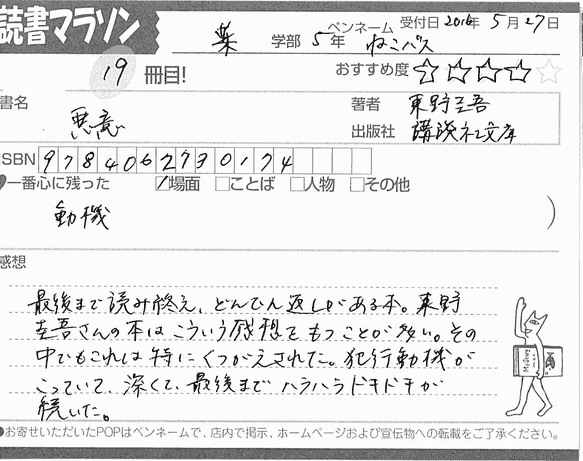 読書マラソン
薬 学部 5年
ペンネーム ねこバス
受付日 2016年 5月27日
19 冊目!
おすすめ度 ☆☆☆☆☆
書名 悪意
著者 東野圭吾
出版社 講談社文庫
ISBN 9784062730174
♥一番心に残った ☑場面 □ことば □人物 □その他
動機 )
感想
最後まで読み終え、どんでん返しがある本。東野
圭吾さんの本はこういう感想をもつことが多い。その
中でもこれは特にくつがえされた。犯行動機が
こっていて、深くて、最後までハラハラドキドキが
続いた。
●お寄せいただいたPOPはペンネームで、店内で掲示、ホームページおよび宣伝物への転載をご了承ください。